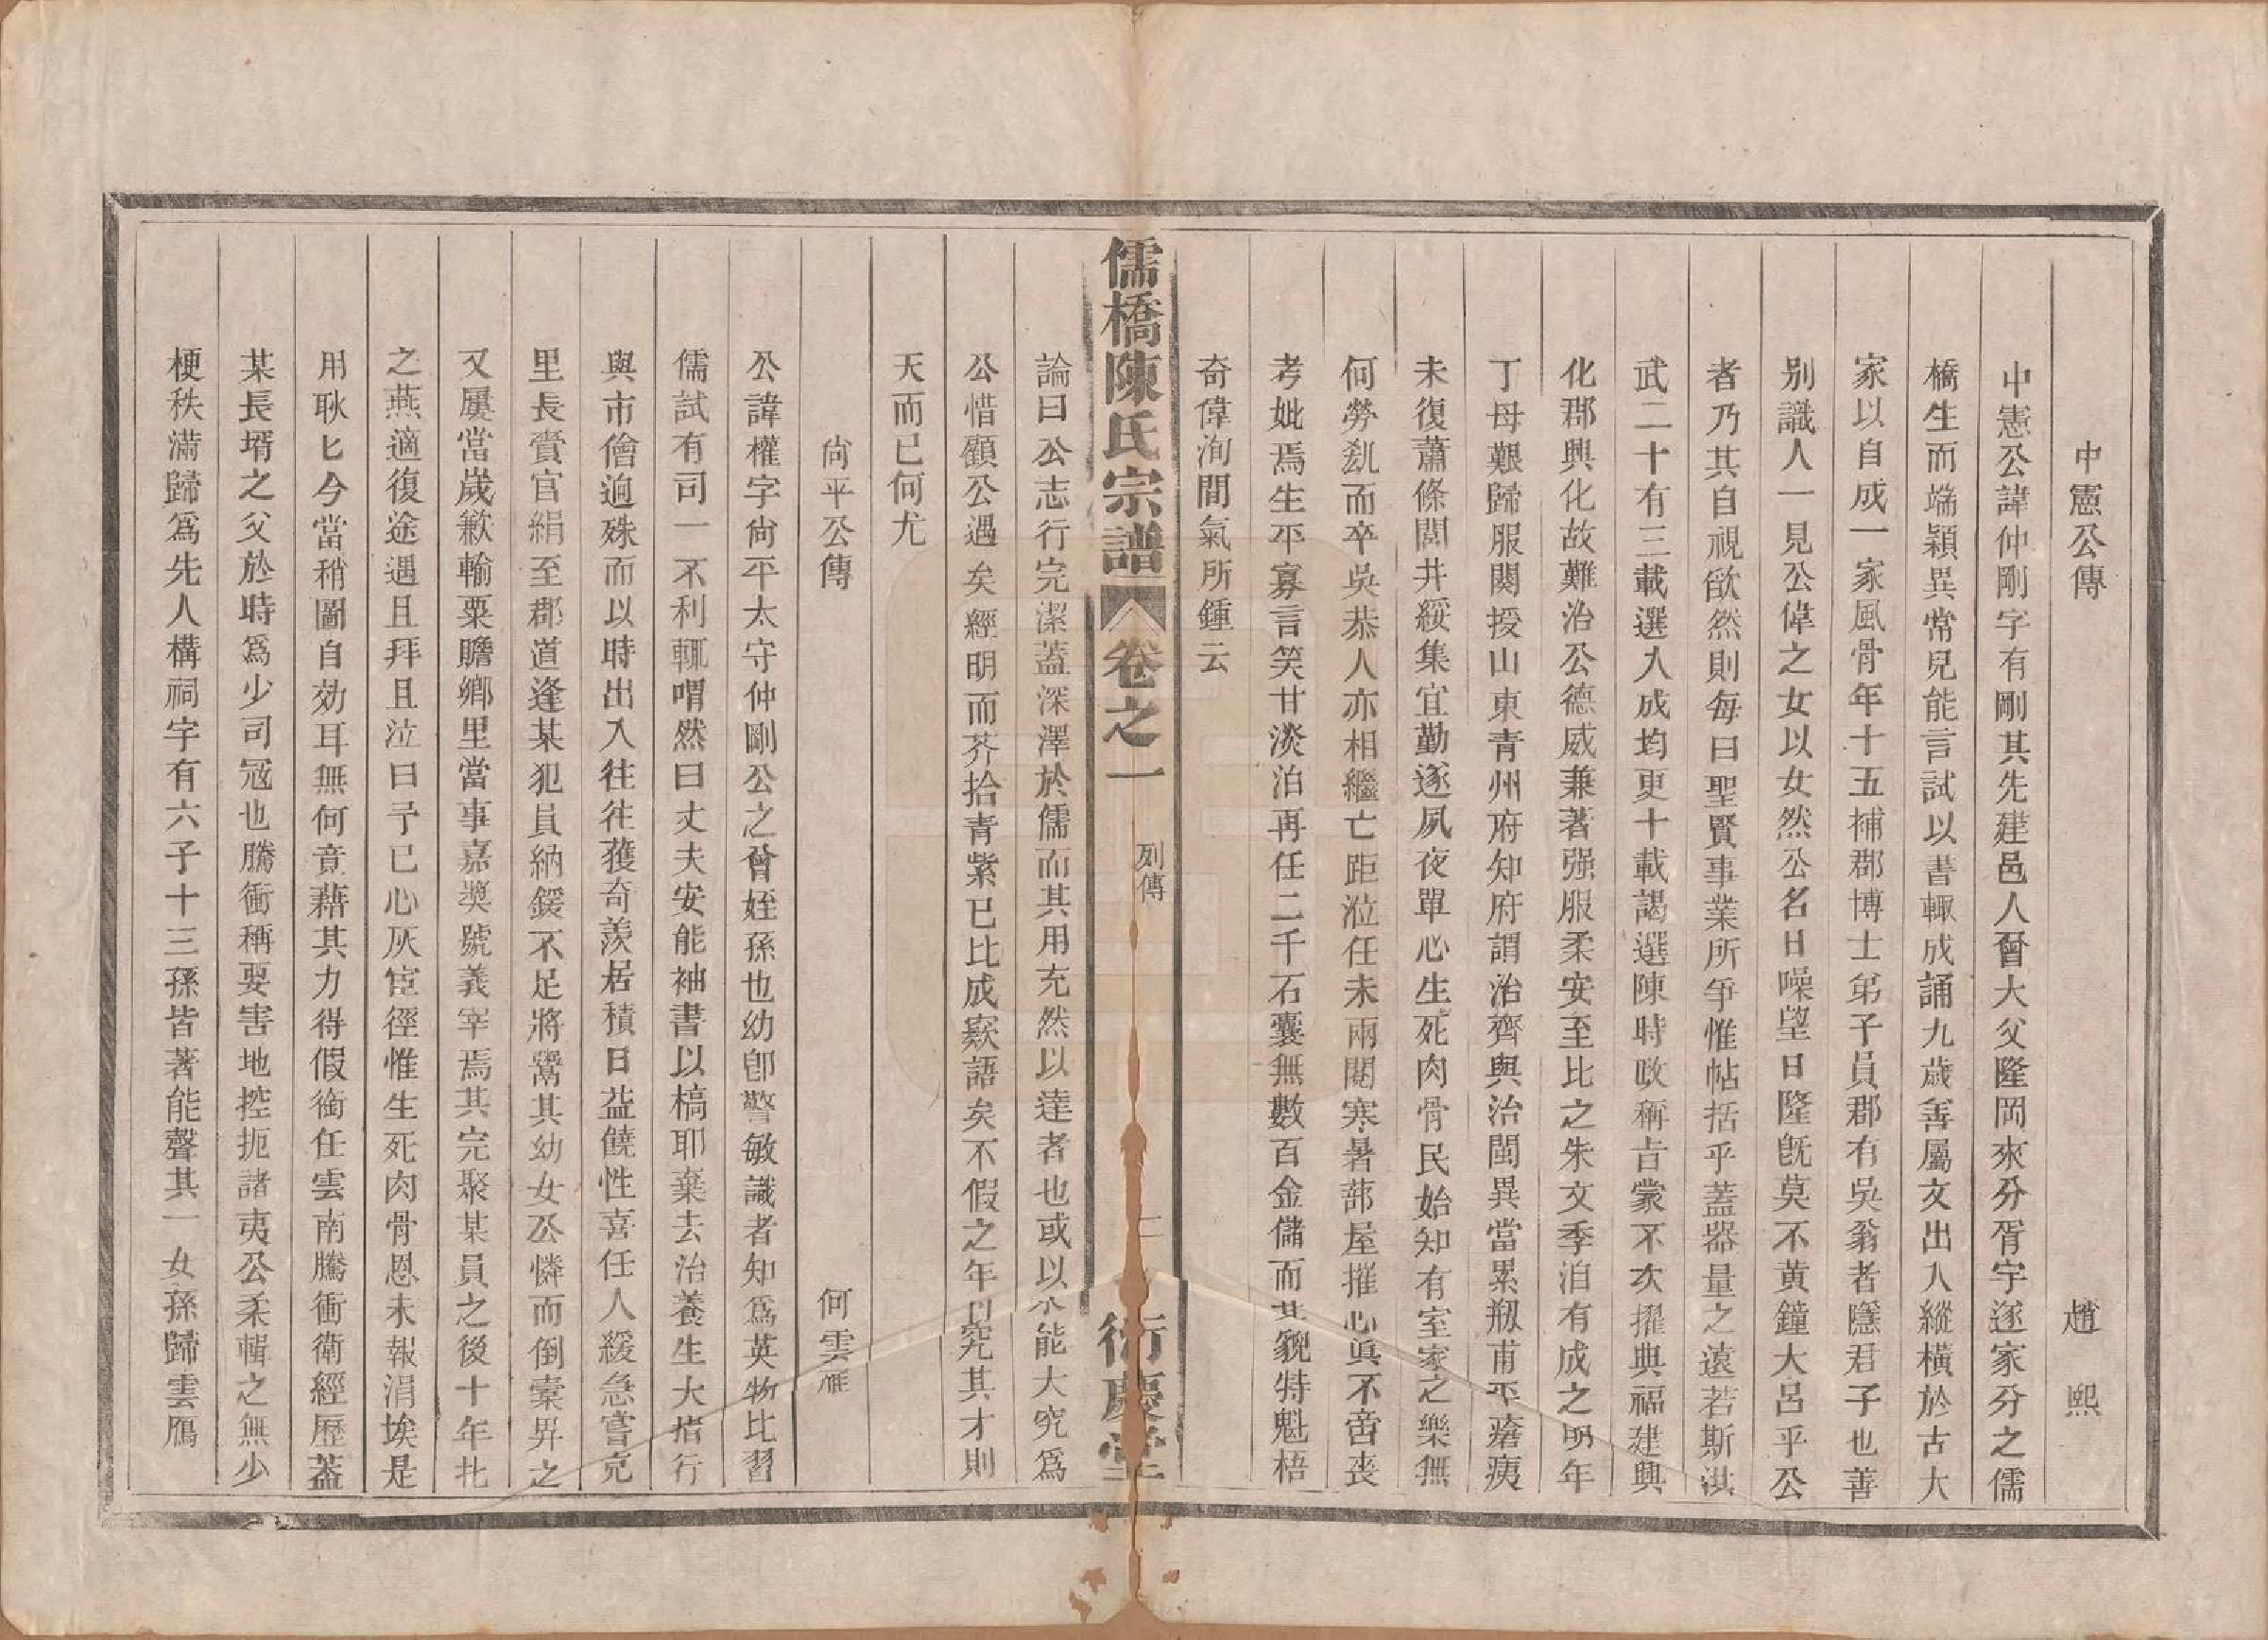 中憲公傳　趙熙
中憲公諱仲剛字有剛其先建邑人曾大父隆岡來分胥宇逐家分之儒
橋生而端穎異常兒能言試以書輒成誦九歲善屬文出入縱橫於古大
家以自成一家風骨年十五補郡博士弟子員郡有吳翁者隱君子也善
別識人一見公偉之女以女然公名日噪望日隆旣莫不黃鐘大呂乎公
者乃其自視欿然則每曰聖賢事業所爭惟帖括乎蓋器量之遠若斯淇
武二十有三載選入成均更十載謁選陳時政稱旨蒙不次擢典福建興
化郡興化故難治公德威兼著强服柔安至比之朱文季洎有成之明年
丁母艱歸服闋授山東青州府知府謂治齊與治閩異當累剏甫平瘡痍
未復蕭條閭井綏集宜勤逐夙夜單心生死肉骨民始知有室家之樂無
何勞㓨而卒吳恭人亦相繼亡距涖任未兩閱寒暑蔀屋摧心眞不啻喪
考妣焉生平寡言笑甘淡泊再任二千石囊無數百金儲而其貌特魁梧
奇偉洵間氣所鍾云
儒橋陳氏宗譜　卷之一　列傳　二　衍慶堂
論曰公志行完潔蓋深澤於儒而其用充然以達者也或以不能大究爲
公惜顧公遇矣經明而芥拾青紫已比成窾語矣不假之年以究其才則
天而已何尤
尙平公傳　何雲雁
公諱權字尙平太守仲剛公之曾姪孫也幼卽警敏識者知爲英物比習
儒試有司一不利輒喟然曰丈夫安能袖書以槁耶棄去治養生大指行
與市儈逈殊而以時出入往往獲奇羨居積日益饒性喜任人緩急嘗充
里長賫官絹至郡道逢某犯員納鍰不足將鬻其幼女公憐而倒橐畀之
又屢當歲歉輸粟贍鄉里當事嘉奬號義宰焉其完聚某員之後十年北
之燕適復途遇且拜且泣曰予已心灰宦徑惟生死肉骨恩未報涓埃是
用耿匕今當稍圖自効耳無何竟藉其力得假銜任雲南騰衝衛經歷蓋
某長壻之父於時爲少司冦也騰衝稱要害地控扼諸夷公柔輯之無少
梗秩滿歸爲先人構祠宇有六子十三孫皆著能聲其一女孫歸雲鴈